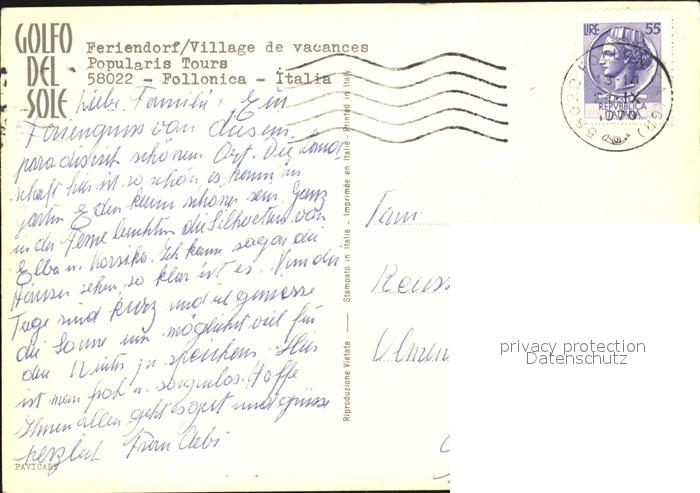 GOLFO
DEL
SOLE
Feriendorf/Village de vacances
Popularis Tours
58022 - Follonica - Italia
LIRE 55
REPVBBLICA
ITALIANA
58022
Liebe Familie! Ein
Feriengruss von diesem
paradiesisch schönem Ort. Die Land
schaft hier ist so schön es kann im
Garten Eden kaum schöner sein. Ganz
in der Ferne leuchten die Silhouetten von
Elba u. Korsika. Ich kann sogar die
Häuser sehen, so klar ist es. Nur die
Tage sind kurz und ich geniesse
die Sonne um möglichst viel für
den Winter zu speichern. Hier
ist man froh u. sorgenlos. Hoffe
Ihnen allen geht es gut und grüsse
herzlich Frau Aebi
PAVICART
Riproduzione Vietata — Stampato in Italia - Imprimée en Italie - Printed in Italy
Fam.
Reuss
privacy protection
Datenschutz